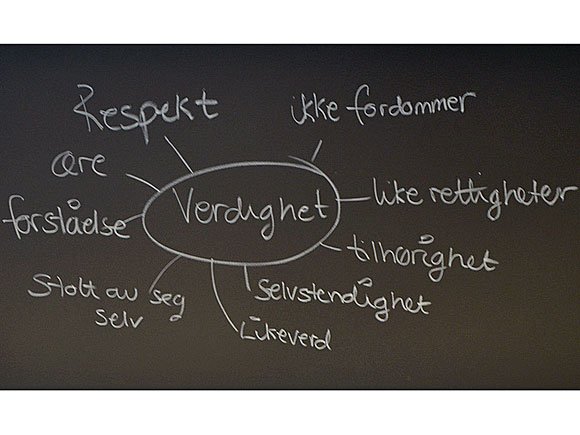 Respekt
ikke fordommer
ære
Verdighet
like rettigheter
forståelse
tilhørighet
Stolt av seg
selv
Selvstendighet
Likeverd